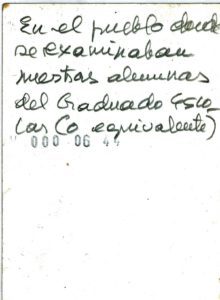 En el pueblo donde
se examinaban
nuestras alumnas
del Graduado Esco
lar (o equivalente)
000 06 44